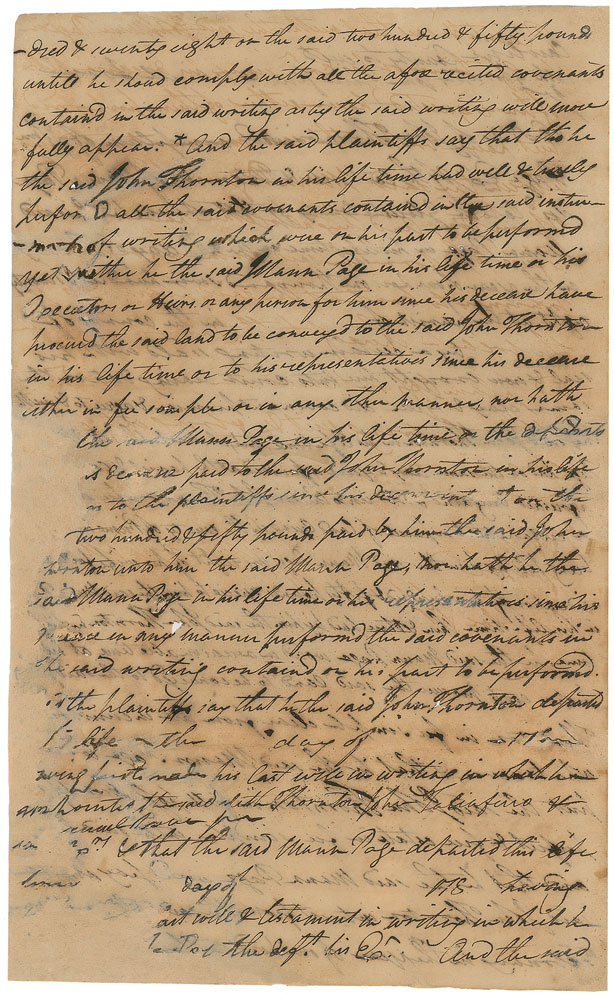 -dred & seventy eight on the said two hundred & fifty pounds
untill he shoud comply with all the afore recited covenants
containd in the said writing as by the said writing will more
fully appear: * And the said plaintiffs say that tho he
the said John Thornton in his life time had well & truly
perform'd all the said covenants contained in the said instru-
-ment of writing which were on his part to be performed
yet neither he the said Mann Page in his life time or his
Executors or Heirs or any person for him since his decease have
procured the said land to be conveyed to the said John Thornton
in his life time or to his representatives since his decease
either in fee simple or in any other manner, nor hath
the said Mann Page in his life time or the defendts
is decease paid to the said John Thornton in his life
or to the plaintiffs since his decease on the
two hundred & fifty pounds paid by him the said John
Thornton unto him the said Mann Page, nor hath he the
said Mann Page in his life time or his representatives since his
decease in any manner performd the said covenants in
the said writing containd on his part to be performed.
the plaintiffs say that he the said John Thornton departed
life on the day of 17
having first made his last will in writing in which he
appointed the said Thornton John Taliafero &
that the said Mann Page departed this life
day of 178 having
last will & testament in writing in which he
the defts. his Exr. And the said